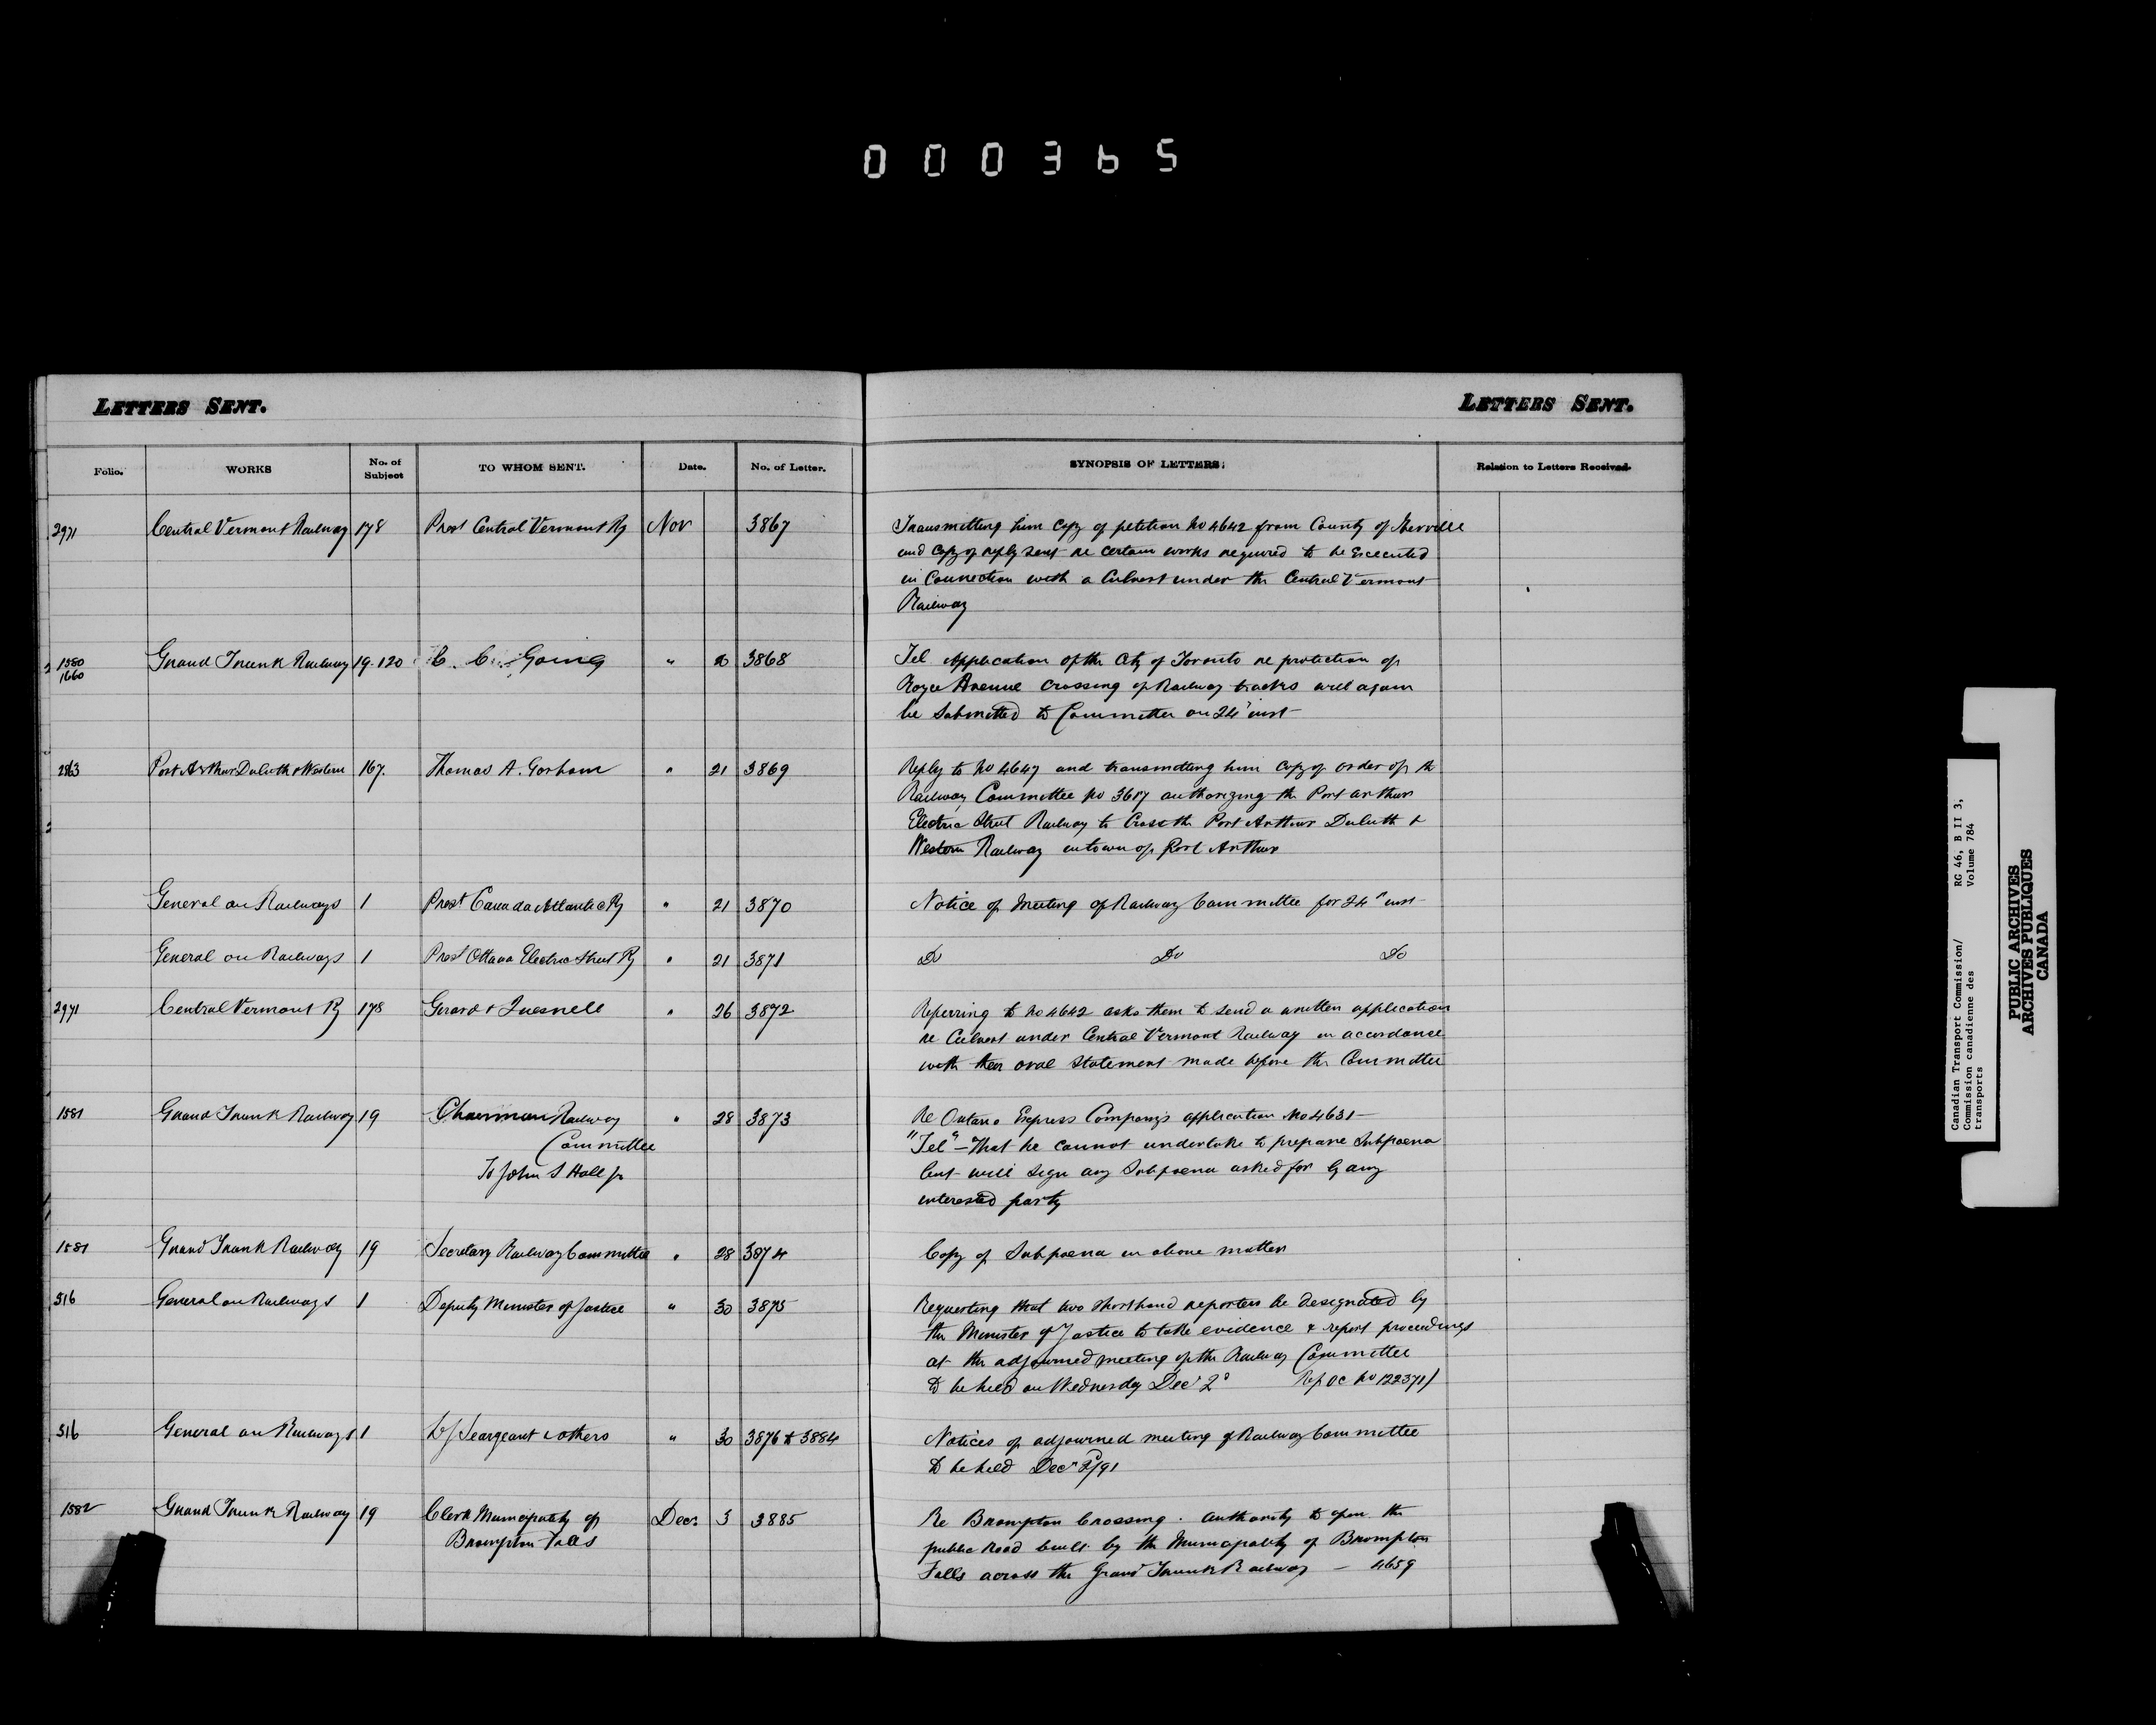 000365
LETTERS SENT.
LETTERS SENT.
Folio. WORKS No. of Subject TO WHOM SENT. Date. No. of Letter. SYNOPSIS OF LETTERS. Relation to Letters Received.
2971 Central Vermont Railway 178 Prest Central Vermont Ry Nov 3867 Transmitting him Copy of petition No 4642 from County of Iberville
and Copy of reply sent re certain works required to be Executed
in Connection with a Culvert under the Central Vermont
Railway
1580 1660 Grand Trunk Railway 19-120 C. C. Going " 20 3868 Tel Application of the City of Toronto re protection of
Royce Avenue Crossing of Railway tracks will again
be Submitted to Committee on 24' inst
2863 Port Arthur Duluth & Western 167. Thomas A. Gorham " 21 3869 Reply to No 4647 and transmitting him Copy of order of the
Railway Committee No 3617 authorizing the Port Arthur
Electric Street Railway to Cross the Port Arthur Duluth &
Western Railway in town of Port Arthur
General on Railways 1 Prest Canada Atlantic Ry " 21 3870 Notice of Meeting of Railway Committee for 24" inst
General on Railways 1 Prest Ottawa Electric Street Ry " 21 3871 Do Do Do
2971 Central Vermont Ry 178 Girard & Quesnell " 26 3872 Referring to No 4642 asks them to send a written application
re Culvert under Central Vermont Railway in accordance
with their oral Statement made before the Committee
1581 Grand Trunk Railway 19 Chairman Railway " 28 3873 Re Ontario Express Company's application No 4631 –
Committee "Tel" – That he cannot undertake to prepare Subpoena
To John S Hall Jr but will sign any Subpoena asked for by any
interested party
1581 Grand Trunk Railway 19 Secretary Railway Committee " 28 3874 Copy of Subpoena in above matter
316 General on Railways 1 Deputy Minister of Justice " 30 3875 Requesting that two shorthand reporters be designated by
the Minister of Justice to take evidence & report proceedings
at the adjourned meeting of the Railway Committee
to be held on Wednesday Decr 2d Ref OC No 122371)
316 General on Railways 1 Seargeant & others " 30 3876 to 3884 Notices of adjourned meeting of Railway Committee
to be held Decr 2d/91
1582 Grand Trunk Railway 19 Clerk Municipality of Dec. 3 3885 Re Brompton Crossing. Authority to open the
Brompton Falls public Road built by the Municipality of Brompton
Falls across the Grand Trunk Railway – 4659
Canadian Transport Commission/ RG 46, B II 3,
Commission canadienne des Volume 784
transports
PUBLIC ARCHIVES
ARCHIVES PUBLIQUES
CANADA